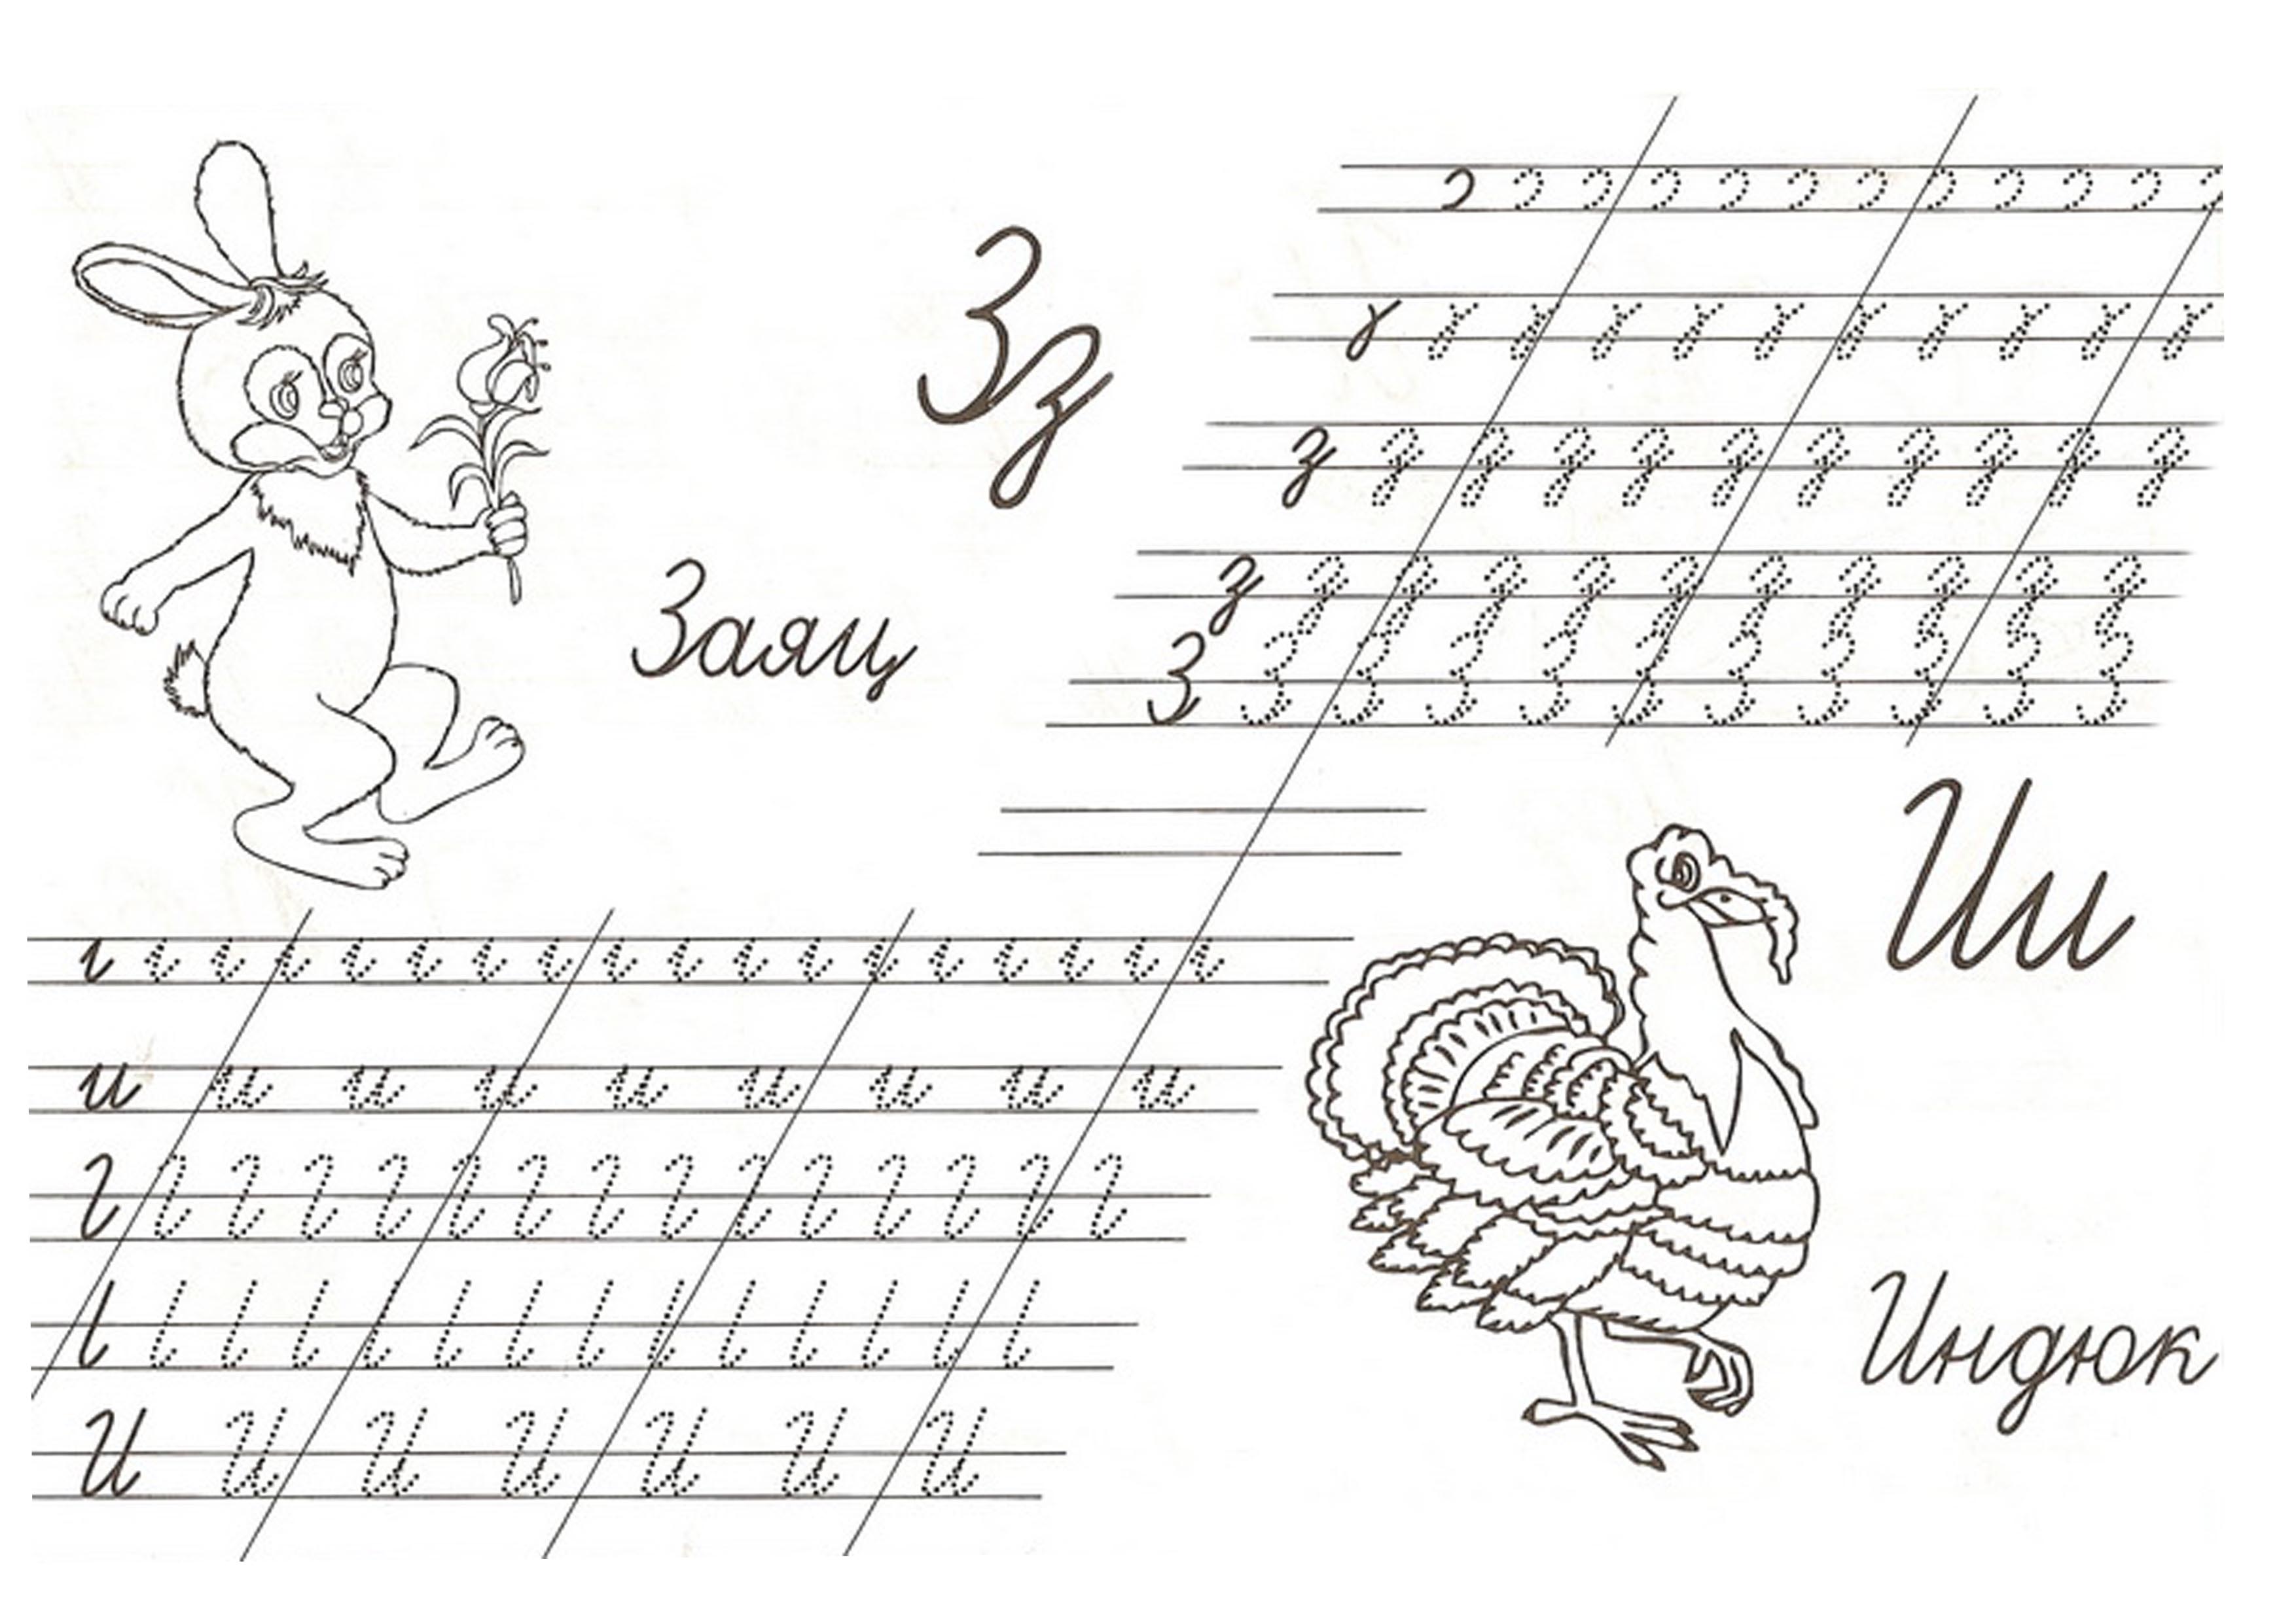 Зз
Заяц
з з з з з з з з з з з
з з з з з з з з з з з
З З З З З З З З З З З
Ии
Индюк
и и и и и и и и и
И И И И И И И